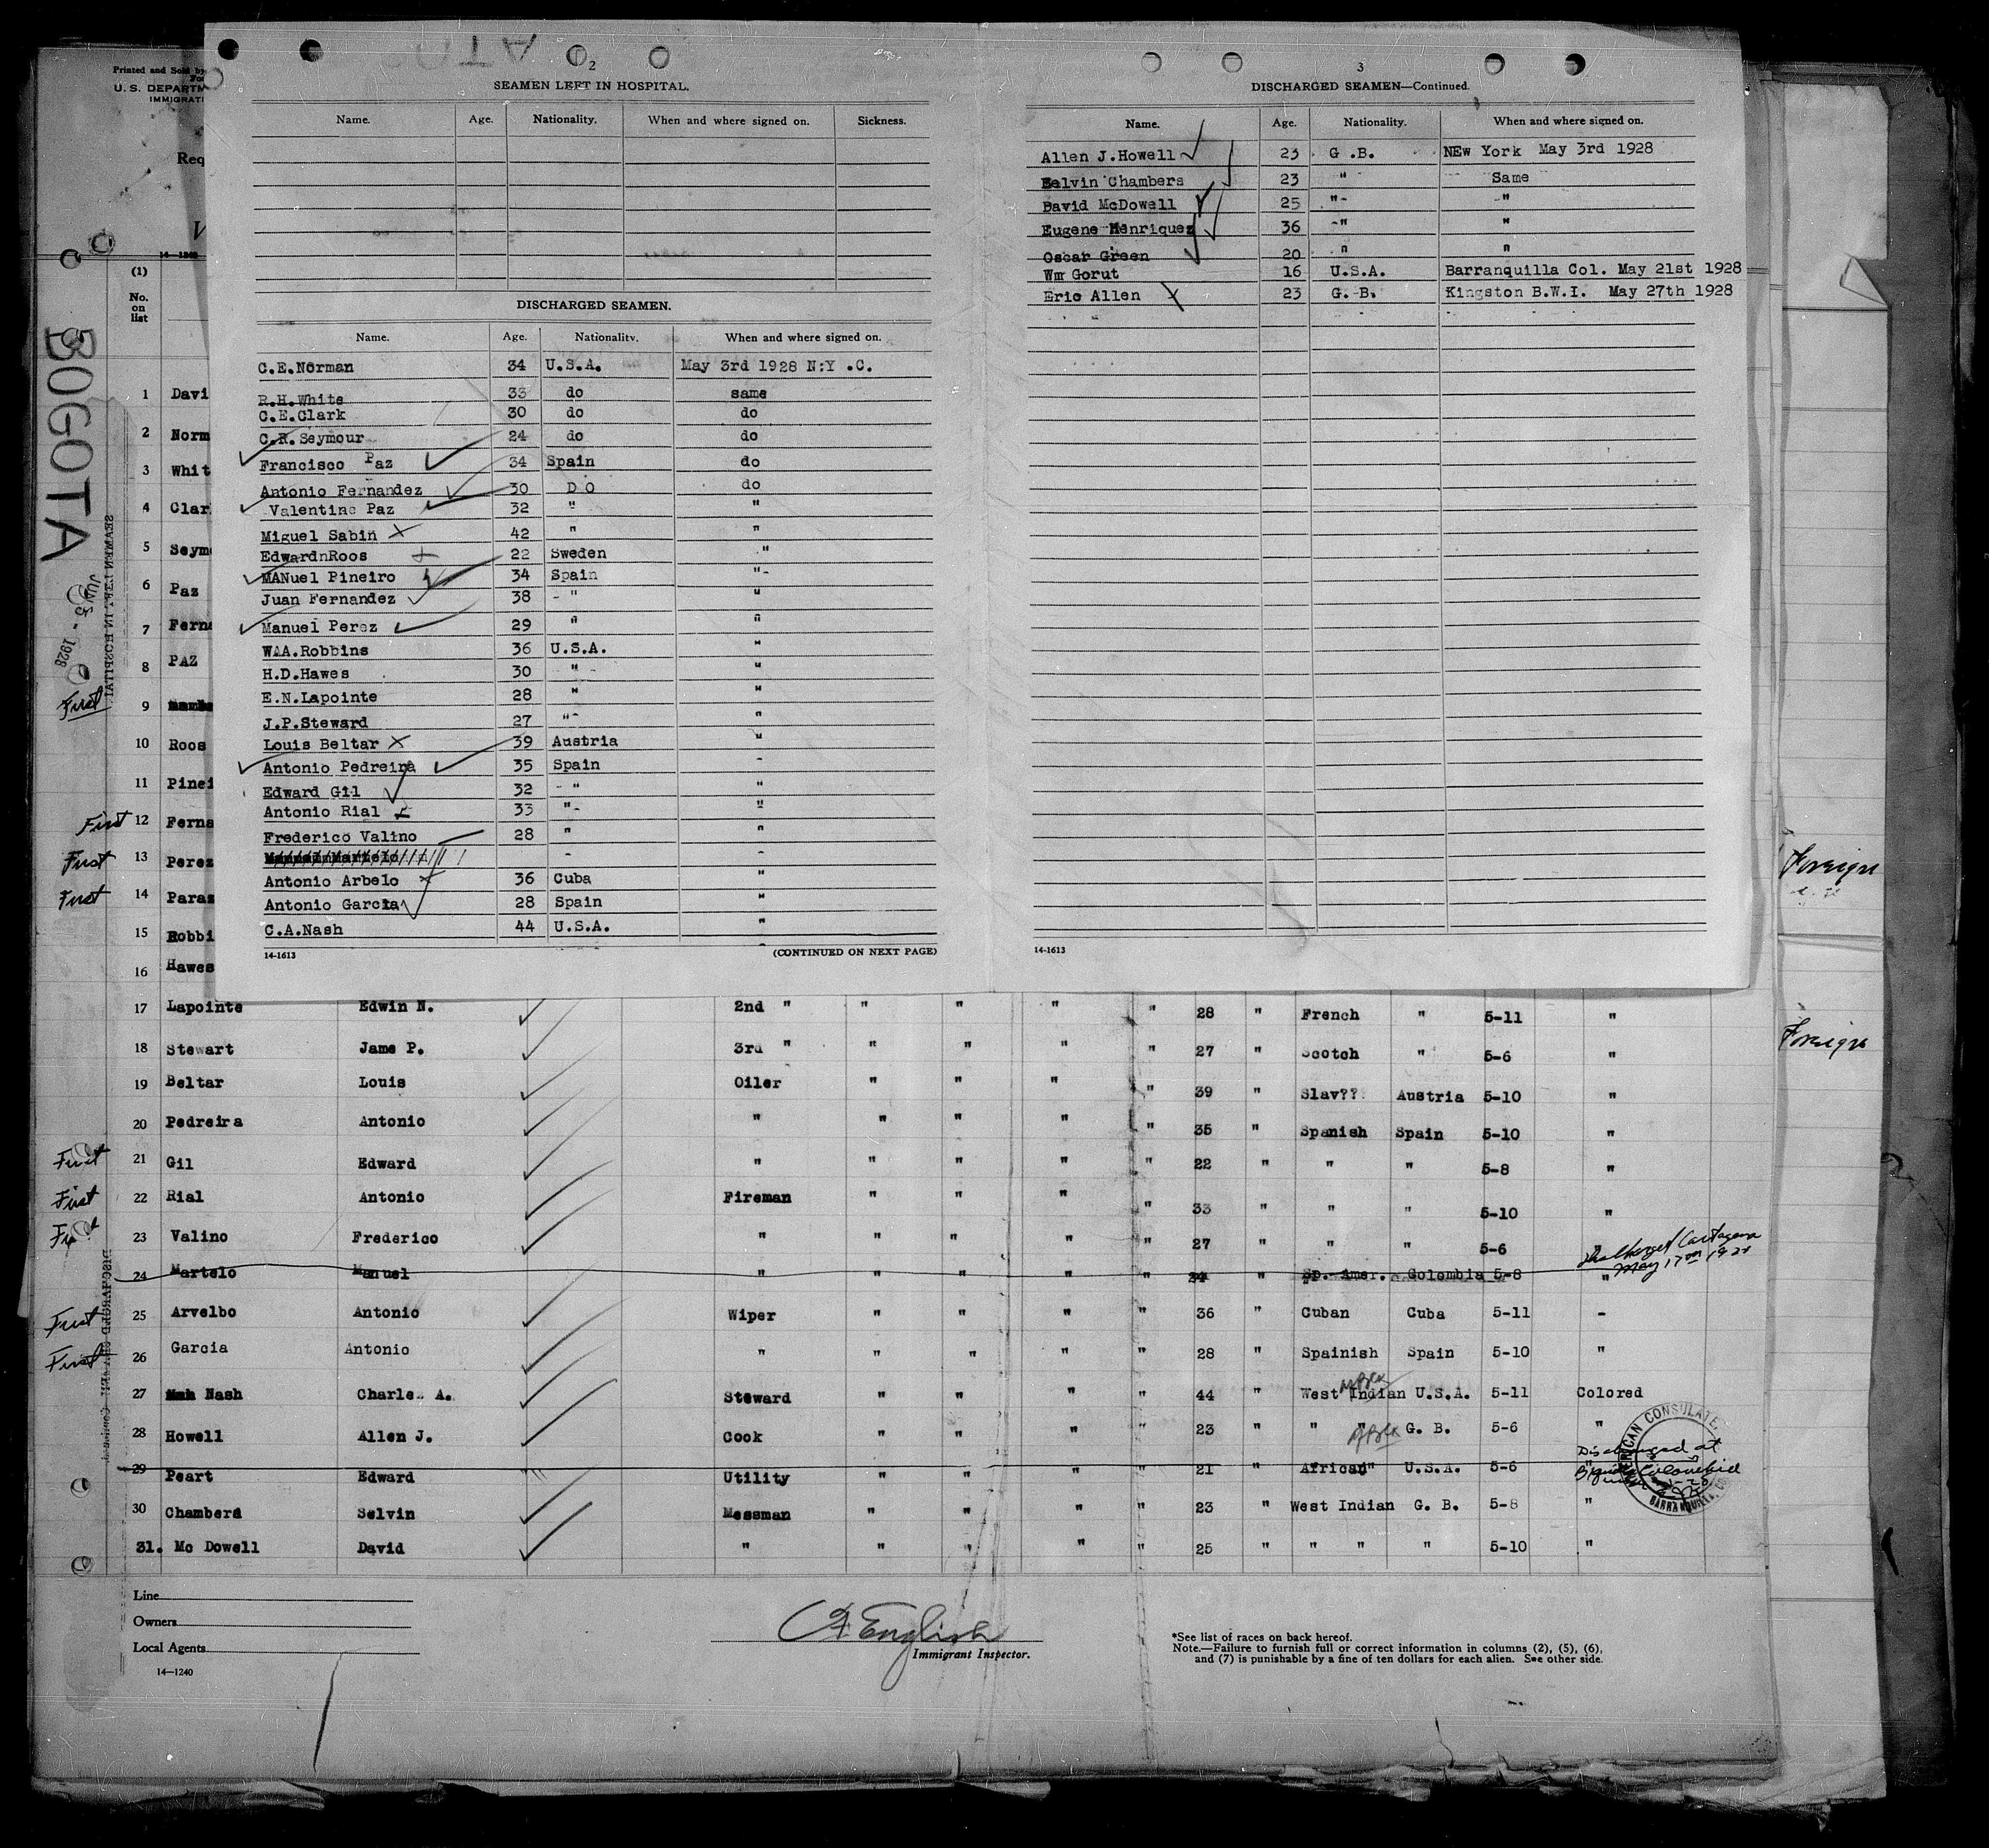 2
SEAMEN LEFT IN HOSPITAL.
Name. Age. Nationality. When and where signed on. Sickness.
DISCHARGED SEAMEN.
Name. Age. Nationality. When and where signed on.
C.E.Norman 34 U.S.A. May 3rd 1928 N:Y .C.
R.H.White 33 do same
C.E.Clark 30 do do
C.R.Seymour 24 do do
Francisco Paz 34 Spain do
Antonio Fernandez 30 D O do
Valentine Paz 32 " "
Miguel Sabin 42 " "
EdwardnRoos 22 Sweden "
MANuel Pineiro 34 Spain "-
Juan Fernandez 38 - " "
Manuel Perez 29 " "
W.A.Robbins 36 U.S.A. "
H.D.Hawes 30 " "
E.N.Lapointe 28 " "
J.P.Steward 27 "- "
Louis Beltar 39 Austria "
Antonio Pedreira 35 Spain -
Edward Gil 32 - " "
Antonio Rial 33 "- "
Frederico Valino 28 " "
Manuel Martelo - -
Antonio Arbelo 36 Cuba "
Antonio Garcia 28 Spain "
C.A.Nash 44 U.S.A. "
14-1613 (CONTINUED ON NEXT PAGE)
3
DISCHARGED SEAMEN—Continued.
Name. Age. Nationality. When and where signed on.
Allen J.Howell 23 G .B. NEw York May 3rd 1928
Selvin Chambers 23 " Same
David McDowell 25 "- "
Eugene Henriquez 36 -" "
Oscar Green 20 " "
Wm Gorut 16 U.S.A. Barranquilla Col. May 21st 1928
Eric Allen 23 G. B. Kingston B.W.I. May 27th 1928
14-1613
Printed and Sold by
For
U. S. DEPARTM
IMMIGRATI
Req
14—1240
(1)
No.
on
list
BOGOTA
JUN 5 - 1928
SEAMEN LEFT IN HOSPITAL
1 Davi
2 Norm
3 Whit
4 Clar
5 Seym
6 Paz
7 Ferna
8 PAZ
First 9
10 Roos
11 Pinei
First 12 Ferna
First 13 Perez
First 14 Paras
15 Robbi
16 Hawes
Foreign
Foreign
17 Lapointe Edwin N. 2nd " " " " " 28 " French " 5-11 "
18 Stewart Jame P. 3rd " " " " " 27 " Scotch " 5-6 "
19 Beltar Louis Oiler " " " " 39 " Slav?? Austria 5-10 "
20 Pedreira Antonio " " " " " 35 " Spanish Spain 5-10 "
First 21 Gil Edward " " " " " 22 " " " 5-8 "
First 22 Rial Antonio Fireman " " " " 33 " " " 5-10 "
First 23 Valino Frederico " " " " " 27 " " " 5-6 "
Discharged Cartagena
May 17th 1928
24 Martelo Manuel " " " " " 24 " Sp. Amer. Colombia 5-8 "
First 25 Arvelbo Antonio Wiper " " " " 36 " Cuban Cuba 5-11 -
First 26 Garcia Antonio " " " " " 28 " Spainish Spain 5-10 "
27 Nash Charles A. Steward " " " " 44 " West Indian U.S.A. 5-11 Colored
28 Howell Allen J. Cook " " " " 23 " " " G. B. 5-6 "
Discharged at
29 Peart Edward Utility " " " " 21 " African" U.S.A. 5-6 "
30 Chambers Selvin Messman " " " " 23 " West Indian G. B. 5-8 "
31. Mc Dowell David " " " " " 25 " " " " 5-10 "
AMERICAN CONSULATE
BARRANQUILLA, CO
DISCHARGED SEAMEN—Continued
Line
Owners
Local Agents
14—1240
English
Immigrant Inspector.
*See list of races on back hereof.
Note.—Failure to furnish full or correct information in columns (2), (5), (6),
and (7) is punishable by a fine of ten dollars for each alien. See other side.